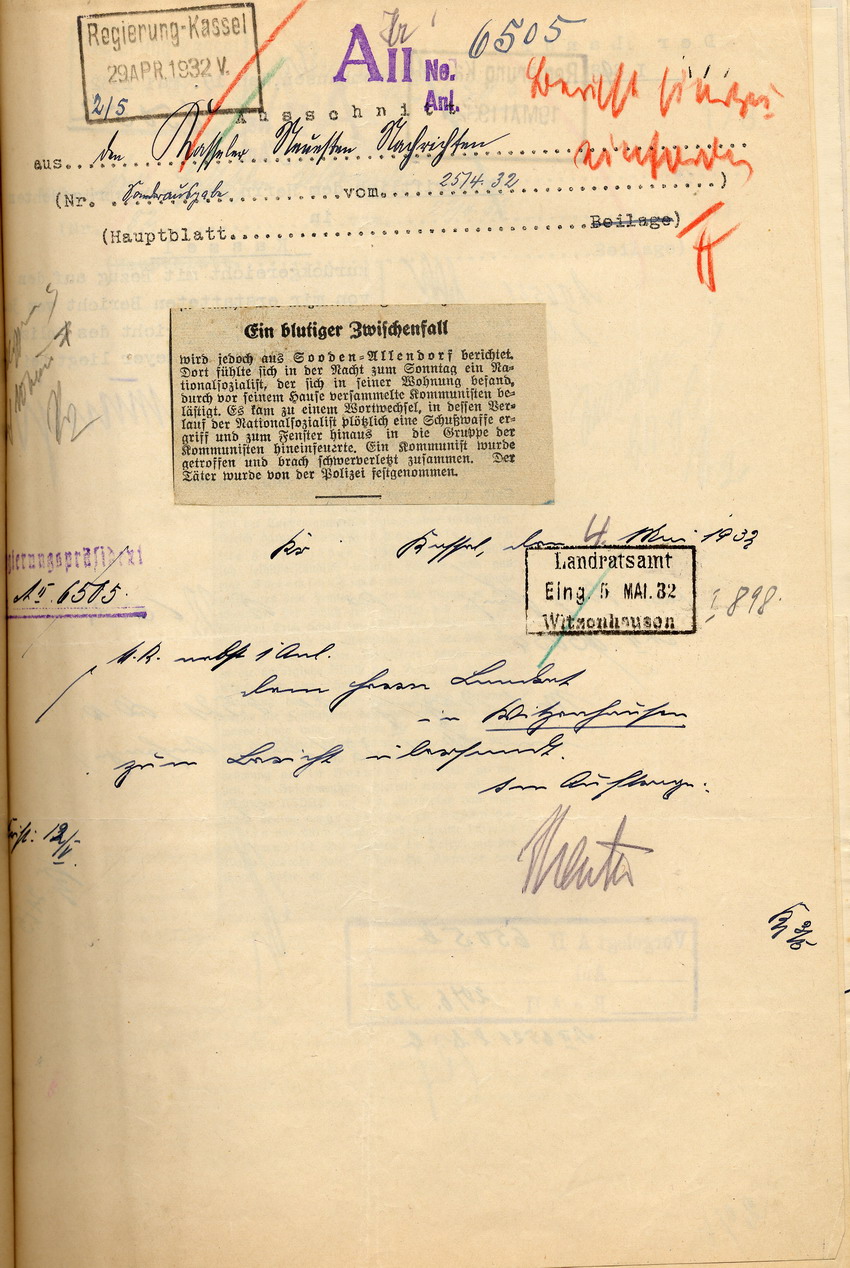 Regierung-Kassel
29 APR. 1932 V.
2/5
A II No.
Anl.
6505
Bericht
einfordern
Ausschnitt
aus den Kasseler Neuesten Nachrichten
(Nr. Sonderausgabe vom 25/4.32)
(Hauptblatt Beilage)
Ein blutiger Zwischenfall
wird jedoch aus Sooden-Allendorf berichtet.
Dort fühlte sich in der Nacht zum Sonntag ein Na-
tionalsozialist, der sich in seiner Wohnung befand,
durch vor seinem Hause versammelte Kommunisten be-
lästigt. Es kam zu einem Wortwechsel, in dessen Ver-
lauf der Nationalsozialist plötzlich eine Schußwaffe er-
griff und zum Fenster hinaus in die Gruppe der
Kommunisten hineinfeuerte. Ein Kommunist wurde
getroffen und brach schwerverletzt zusammen. Der
Täter wurde von der Polizei festgenommen.
Kassel, den 4. Mai 1932
gierungspräsident
A II 6505.
Landratsamt
Eing 5 MAI. 32
Witzenhausen
I 898.
U. R. nebst 1 Anl.
dem Herrn Landrat
in Witzenhausen
zum Bericht übersandt.
Im Auftrage: